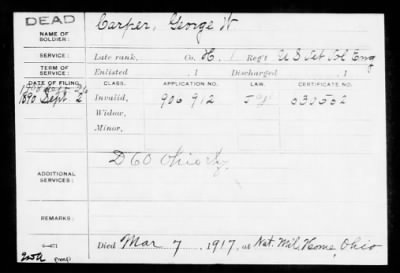 DEAD
NAME OF SOLDIER: Carper, George W
SERVICE: Late rank, Co. H. 1 Reg't U S Vet Vol Eng
TERM OF SERVICE: Enlisted , 1 Discharged , 1
DATE OF FILING. CLASS. APPLICATION NO. LAW. CERTIFICATE NO.
1890 Sept 2 Invalid, 906 912
Widow,
Minor,
ADDITIONAL SERVICES: D 60 Ohio
REMARKS:
Died Mar 7, 1917, at Nat. Mil. Home, Ohio